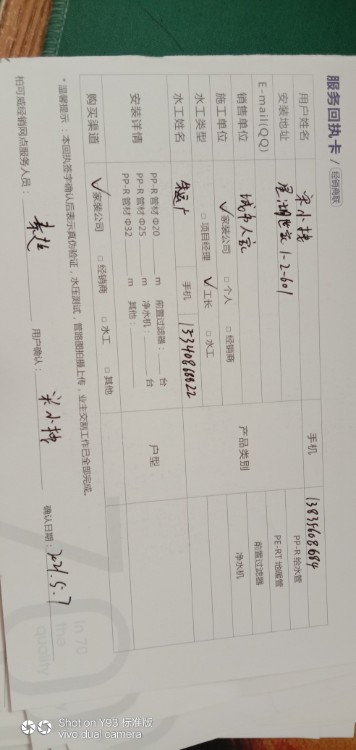 服务回执卡/经销商联
用户姓名 宋小捧 手机 13835608684
安装地址 星湖世家1-2-601 PP-R 给水管
E-mail(QQ) PE-RT 地暖管
销售单位 城市人家 产品类别 前置过滤器
施工单位 √家装公司 □ 个人 □ 经销商 净水机
水工类型 □ 项目经理 √工长 □ 水工
水工姓名 手机 15340866622
安装详情 PP-R 管材 Φ20 m 前置过滤器: 台 户型
PP-R 管材 Φ25 m 净水机: 台
PP-R 管材 Φ32 m 其他:
购买渠道 √家装公司 □ 经销商 □ 水工 □ 其他
*温馨提示:本回执签字确认后表示真伪验证,水压测试,管路图拍摄上传,业主交割工作已全部完成。
柏可威经销网点服务人员: 用户确认: 宋小捧 确认日期: 2021.5.7
In 70
the
quality
Shot on Y93 标准版
vivo dual camera